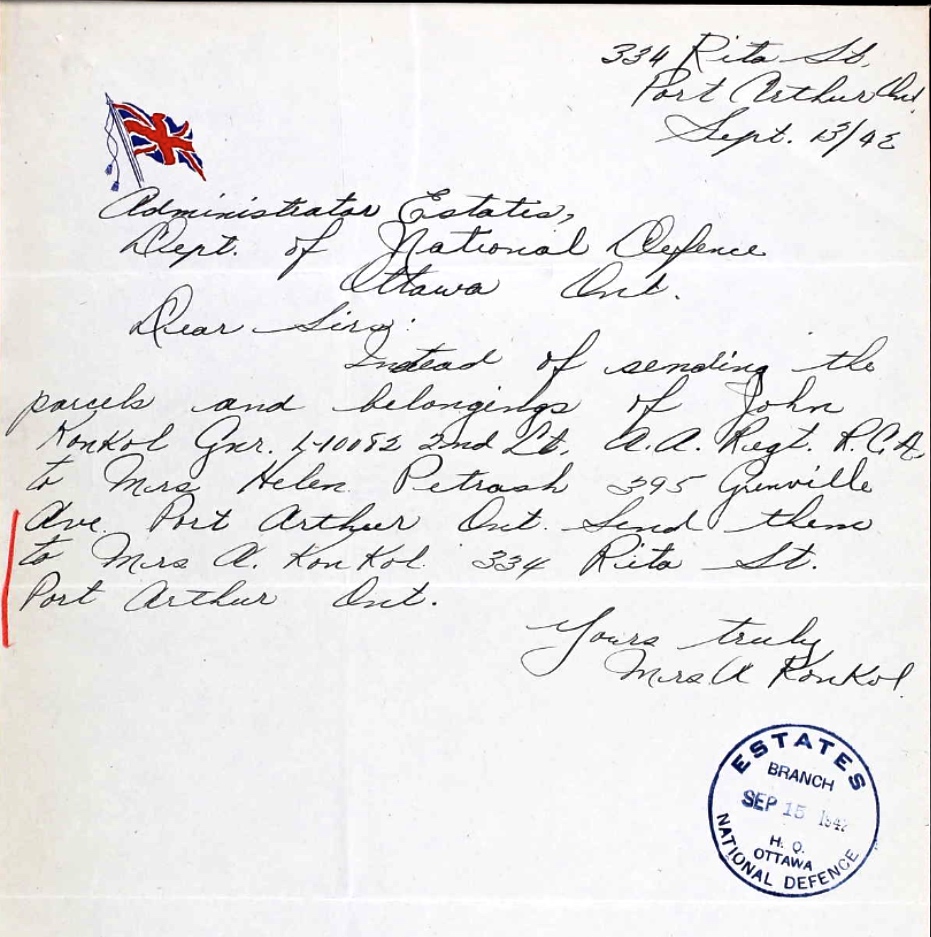 334 Rita St.
Port Arthur Ont.
Sept. 13/42
Administrator Estates,
Dept. of National Defence
Ottawa Ont.
Dear Sirs:
Instead of sending the
parcels and belongings of John
Konkol Gnr. L-10082 2nd Lt. A.A. Regt. R.C.A.
to Mrs Helen Petrash 395 Grenville
Ave. Port Arthur Ont. Send them
to Mrs A. Konkol 334 Rita St.
Port Arthur Ont.
Yours truly
Mrs A Konkol
ESTATES
BRANCH
SEP 15 1942
H. Q.
OTTAWA
NATIONAL DEFENCE